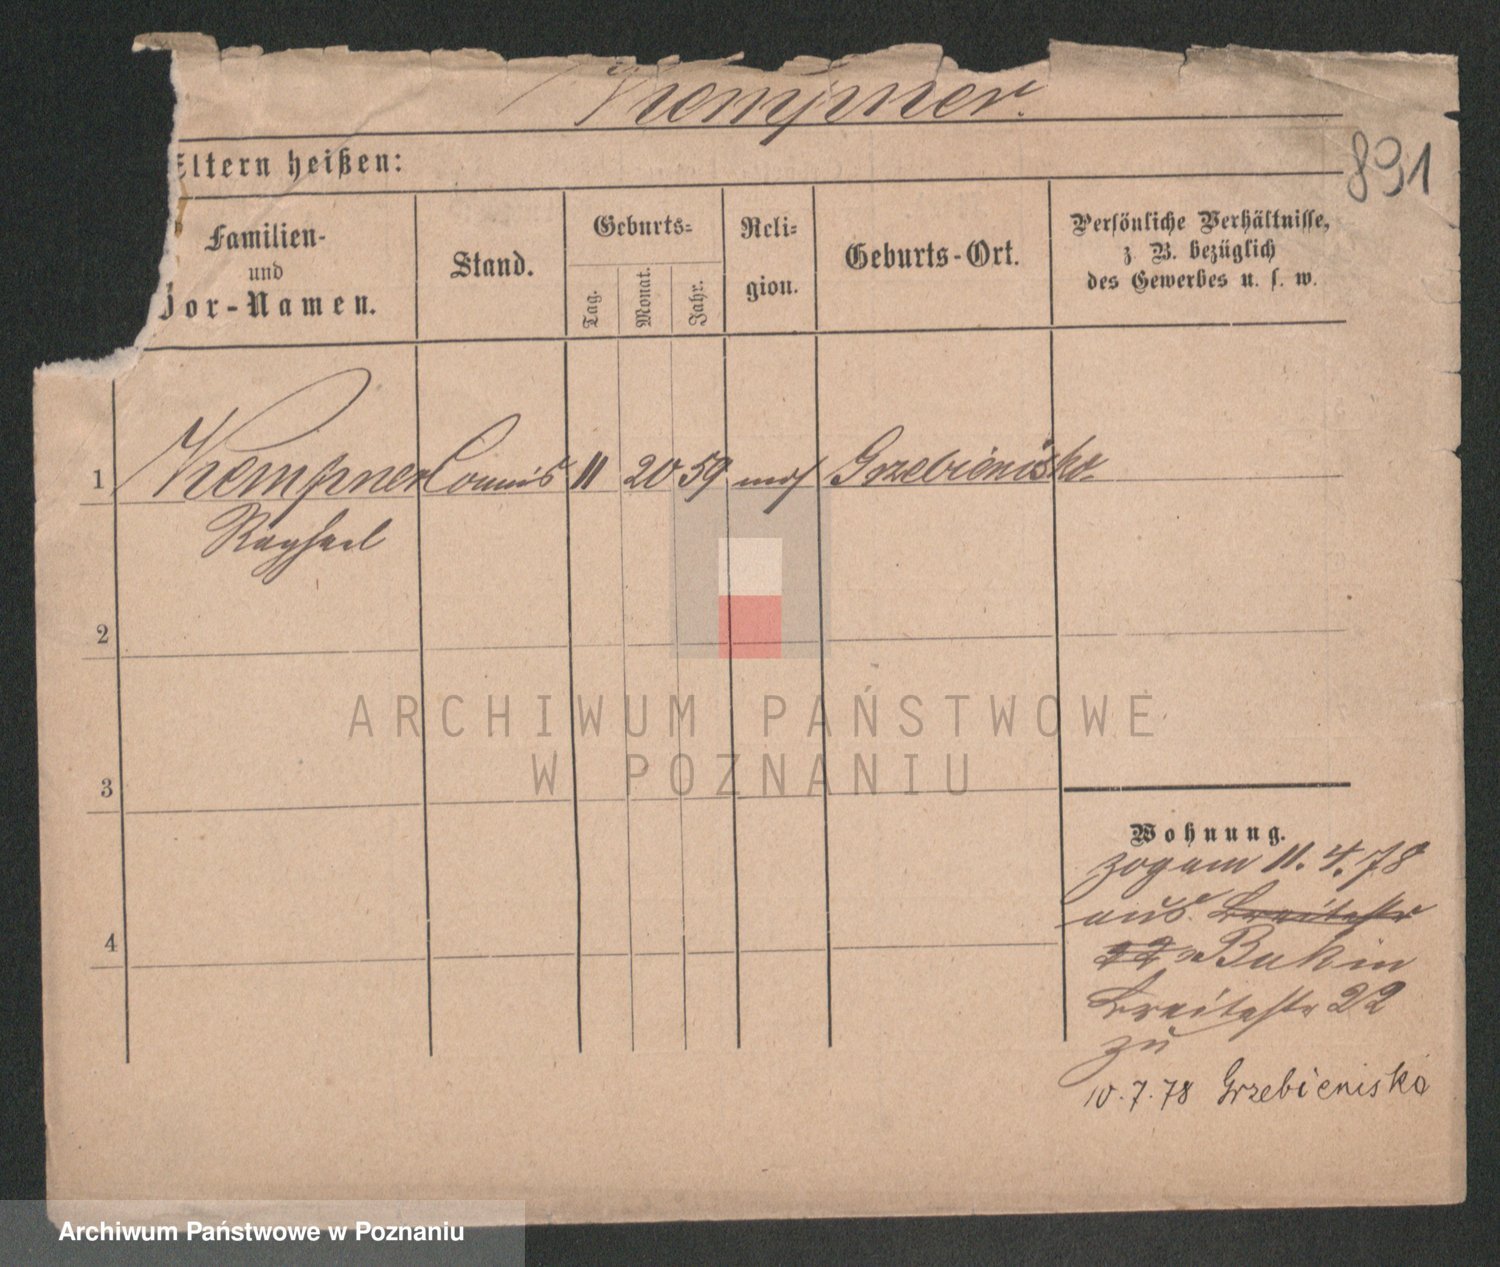 Kempner.
891
Eltern heißen:
Familien-
und
Vor-Namen.
Stand.
Geburts-
Tag.
Monat.
Jahr.
Reli-
gion.
Geburts-Ort.
Persönliche Verhältnisse,
z. B. bezüglich
des Gewerbes u. s. w.
1 Kempner Commis 11 20 59 mos Grzebienisko
Raphael
2
3
4
Wohnung.
zog am 11.4.78
aus Breitestr
22 Bukin
Breitestr 22
zu
10.7.78 Grzebienisko
ARCHIWUM PAŃSTWOWE
W POZNANIU
Archiwum Państwowe w Poznaniu